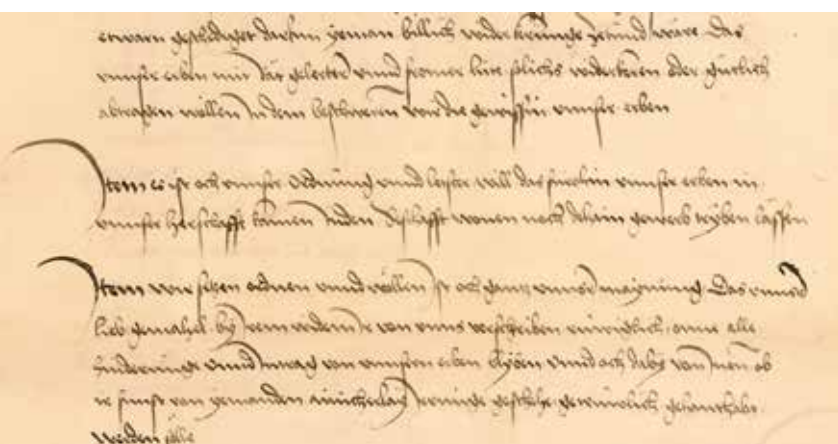 etwarn geschediget darumb yeman billich widerkerunge zetund wäre Das
unnser erben mit Rät gelerter unnd fromer lüte solichs widerkeren oder gütlich
abtragen wöllen In dem beschweren wir die gewissin unnser erben
Item es ist och unnser Ordnung unnd letster will das fürohin unnser erben in
unnser herschafft kainen Juden Seszhafft wonen noch dehain gewerb tryben lässen
Item wir setzen ordnen unnd wöllen Ist och gantz unnser maynung Das unnser
lieb gemahel by irem widem Ir von unns verschriben rüwigklich onne alle
hinderunge unnd Intrag von unnsern erben blyben unnd och daby von Inen ob
ir sunst von yemanden ainicherlay Irrunge geschehe getruwlich gehanthabt
werden sölle